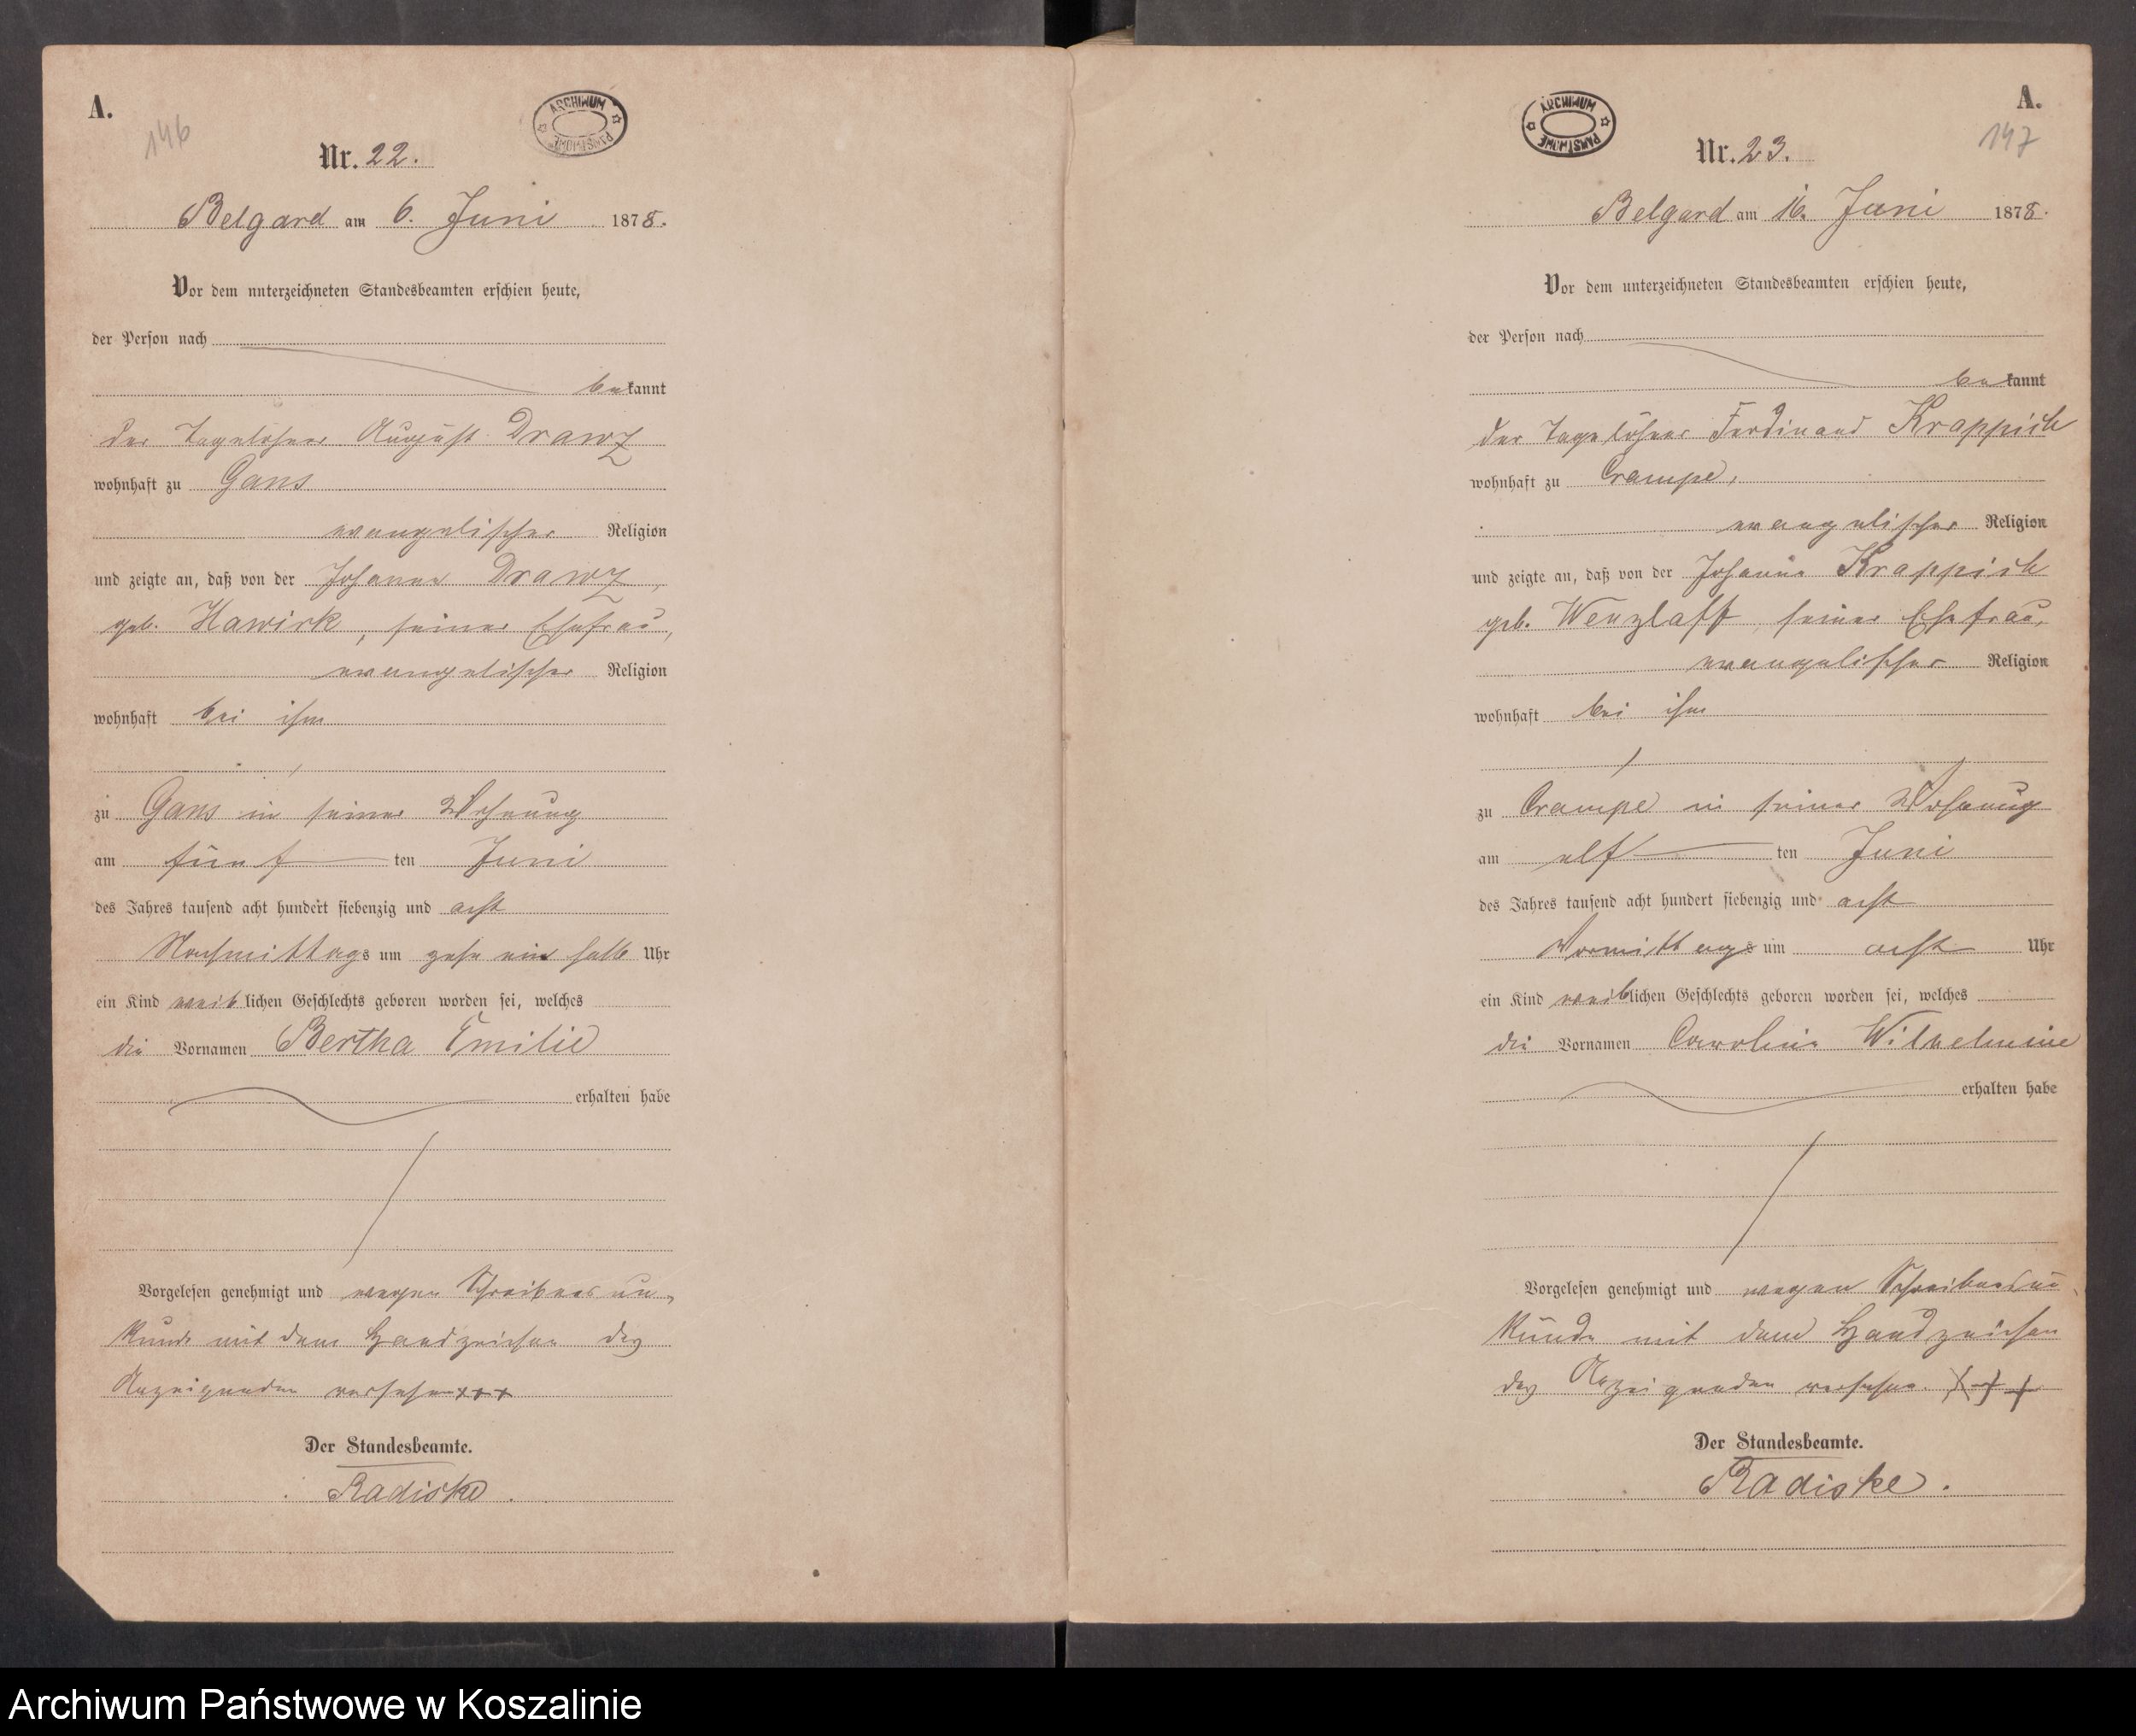 A.
146
ARCHIWUM PAŃSTWOWE
Nr. 22.
Belgard am 6. Juni 1878.
Vor dem unterzeichneten Standesbeamten erschien heute,
der Person nach
bekannt
der Tagelöhner August Drawz
wohnhaft zu Gans
evangelischer Religion
und zeigte an, daß von der Johanne Drawz,
geb. Hawirk, seiner Ehefrau,
evangelischer Religion
wohnhaft bei ihm
zu Gans in seiner Wohnung
am fünf ten Juni
des Jahres tausend acht hundert siebenzig und acht
Nachmittags um zehn ein halb Uhr
ein Kind weiblichen Geschlechts geboren worden sei, welches
die Vornamen Bertha Emilie
erhalten habe
Vorgelesen genehmigt und wegen Schreibensun-
kunde mit dem Handzeichen des
Anzeigenden versehen +++
Der Standesbeamte.
Radiske.
A.
147
ARCHIWUM PAŃSTWOWE
Nr. 23.
Belgard am 16. Juni 1878.
Vor dem unterzeichneten Standesbeamten erschien heute,
der Person nach
bekannt
der Tagelöhner Ferdinand Krappisch
wohnhaft zu Crampe,
evangelischer Religion
und zeigte an, daß von der Johanne Krappisch
geb. Wenzlaff, seiner Ehefrau,
evangelischer Religion
wohnhaft bei ihm
zu Crampe in seiner Wohnung
am elf ten Juni
des Jahres tausend acht hundert siebenzig und acht
Vormittags um acht Uhr
ein Kind weiblichen Geschlechts geboren worden sei, welches
die Vornamen Caroline Wilhelmine
erhalten habe
Vorgelesen genehmigt und wegen Schreibensun-
kunde mit dem Handzeichen
des Anzeigenden versehen. +++
Der Standesbeamte.
Radiske.
Archiwum Państwowe w Koszalinie